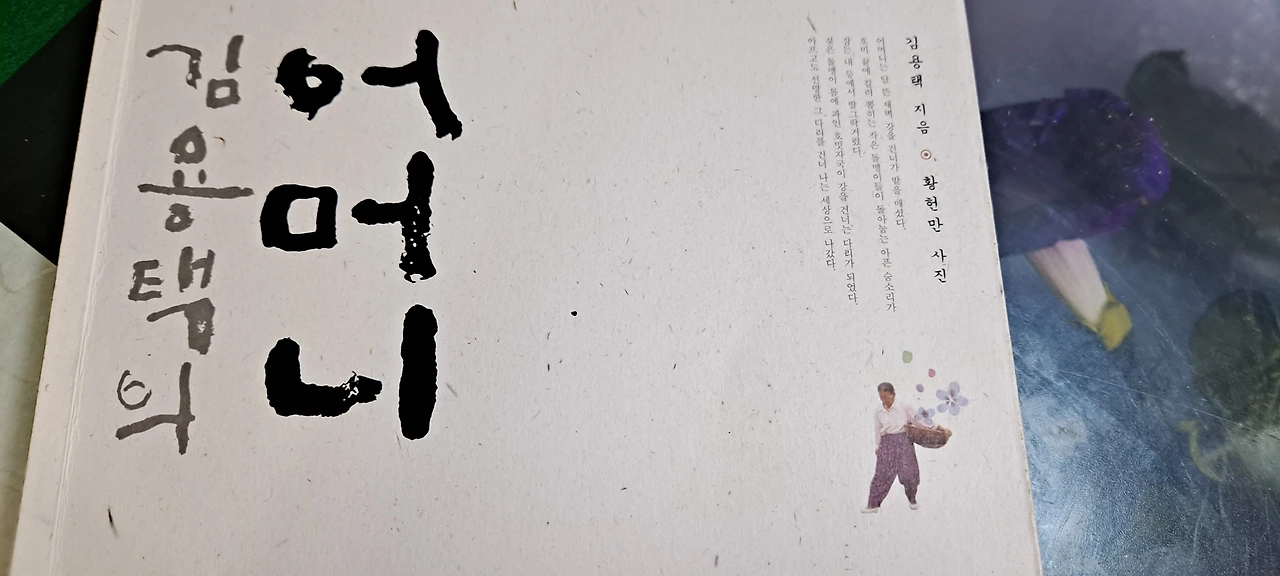 김용택의
어머니
김용택 지음 ⊙ 황헌만 사진
어머니는 달 뜬 새벽 강을 건너가 밭을 매셨다.
호미 끝에 걸려 뽑히는 작은 돌멩이들이 돌아눕는 아픈 숨소리가
잠든 내 등에서 딸그락거렸다.
젖은 돌멩이 몸에 파인 호밋자국이 강을 건너는 다리가 되었다.
아프고도 선명한 그 다리를 건너 나는 세상으로 나갔다.